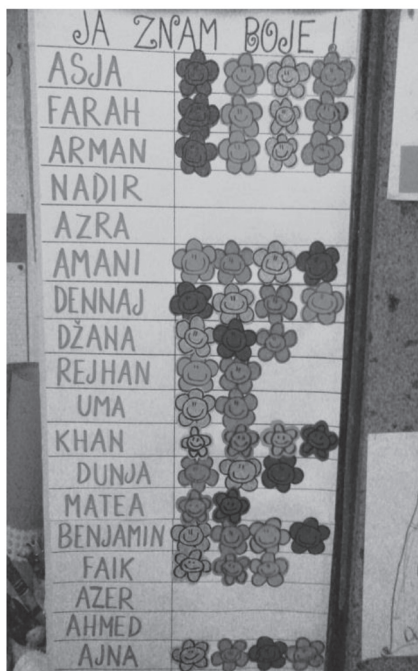 JA ZNAM BOJE!
ASJA
FARAH
ARMAN
NADIR
AZRA
AMANI
DENNAJ
DŽANA
REJHAN
UMA
KHAN
DUNJA
MATEA
BENJAMIN
FAIK
AZER
AHMED
AJNA